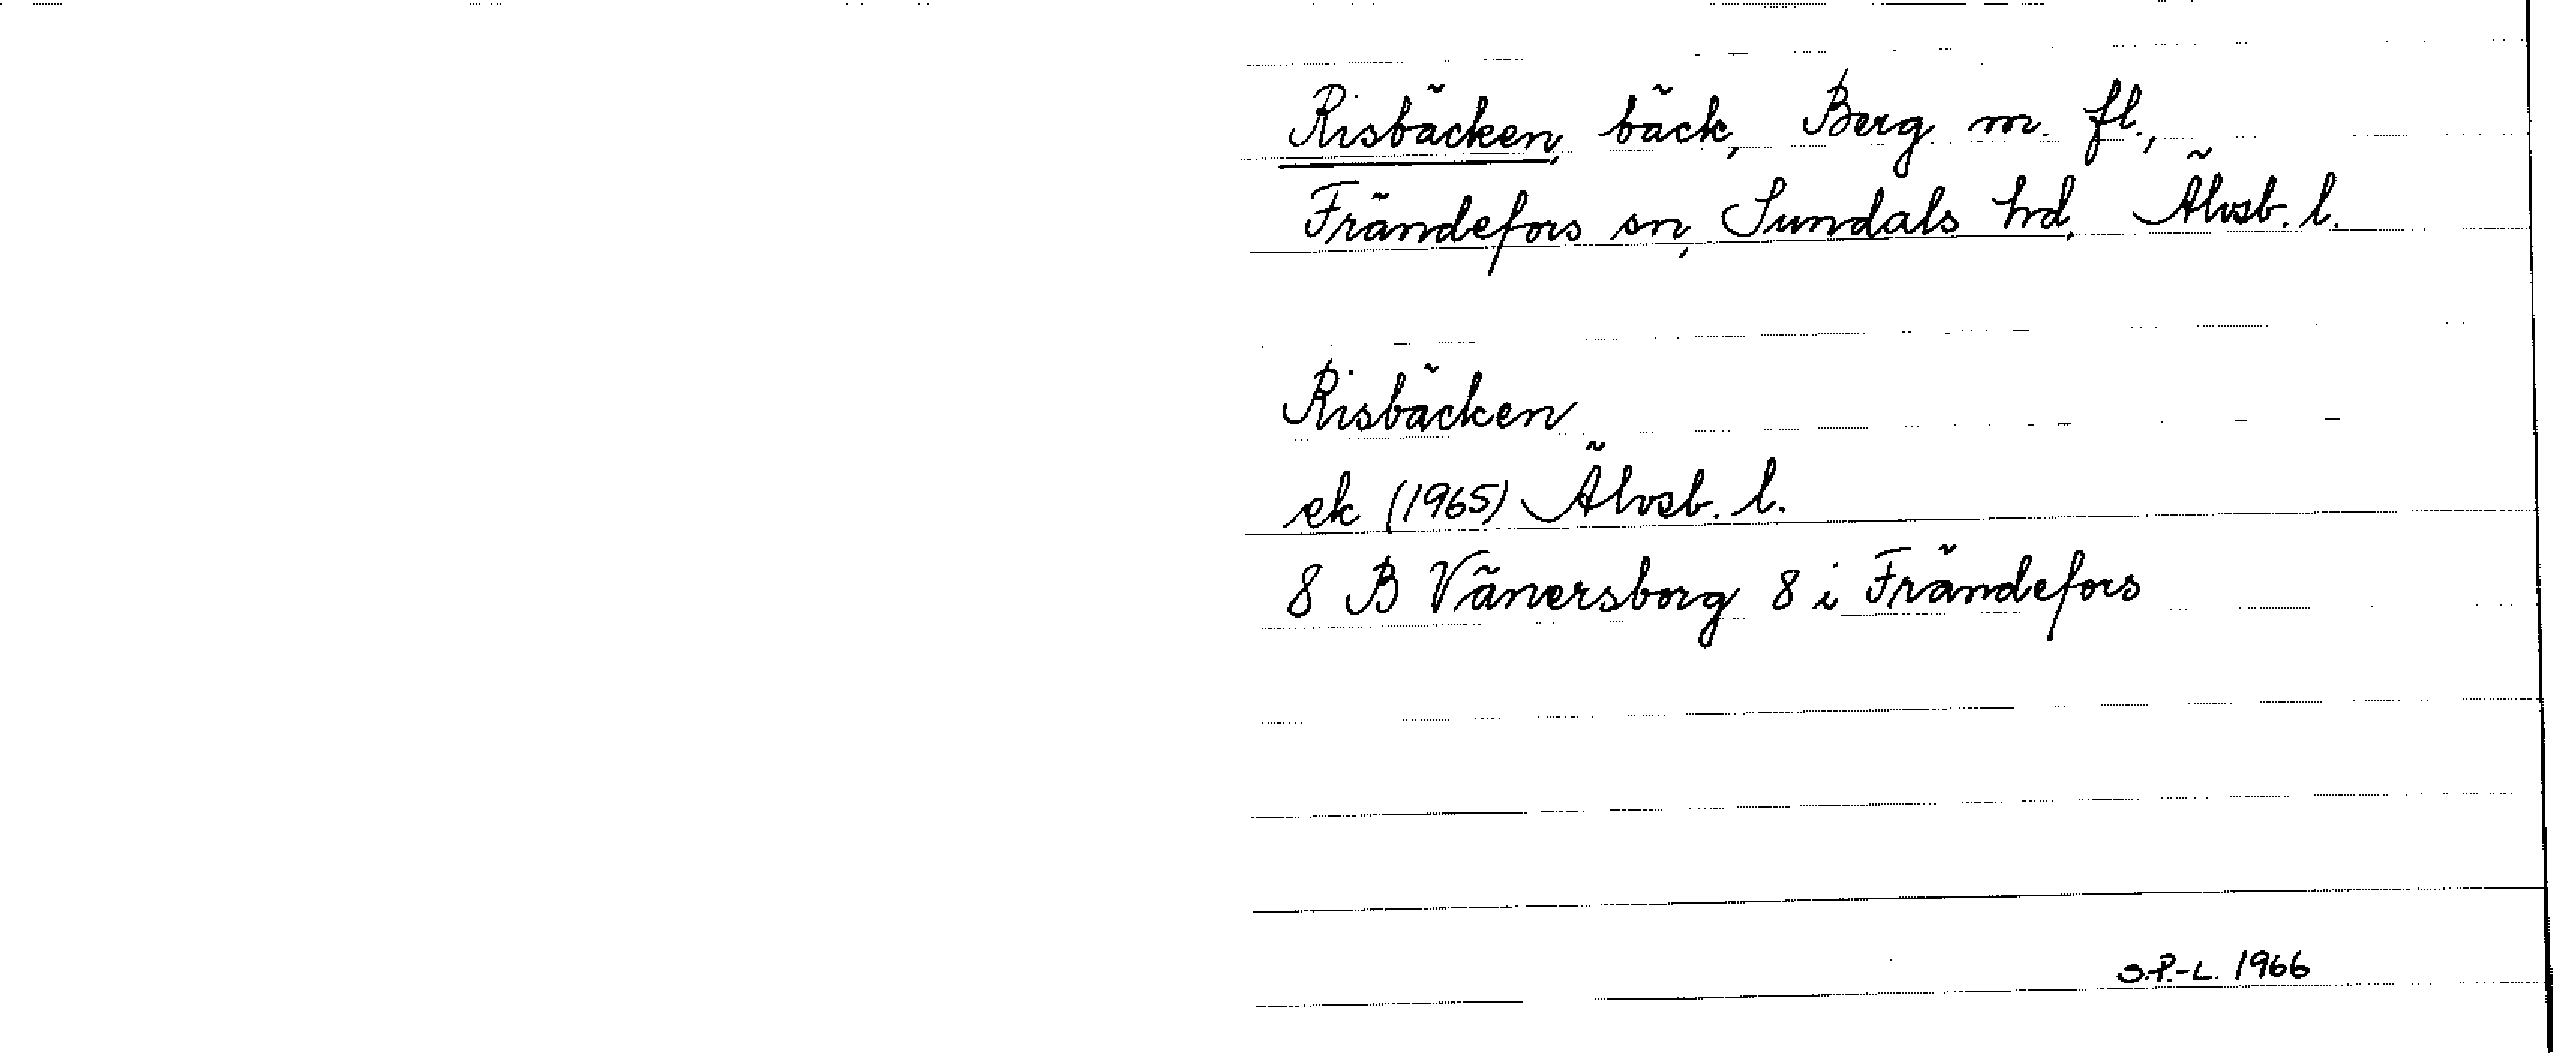 Risbäcken, bäck, Berg m. fl.,
Frändefors sn, Sundals hd, Älvsb. l.
Risbäcken
ek (1965) Älvsb. l.
8 B Vänersborg 8 i Frändefors
S.P.-L. 1966